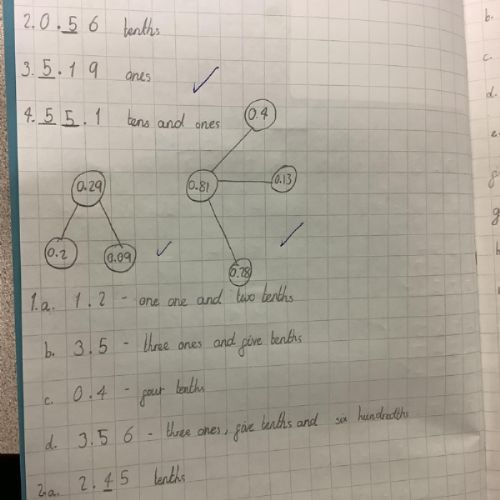 2. 0.56 tenths
3. 5.19 ones
4. 55.1 tens and ones
0.4
0.29
0.81
0.13
0.2
0.09
0.28
1.a. 1.2 - one one and two tenths
b. 3.5 - three ones and five tenths
c. 0.4 - four tenths
d. 3.56 - three ones, five tenths and six hundredths
2.a. 2.45 tenths
b.
c.
d.
e.
g.